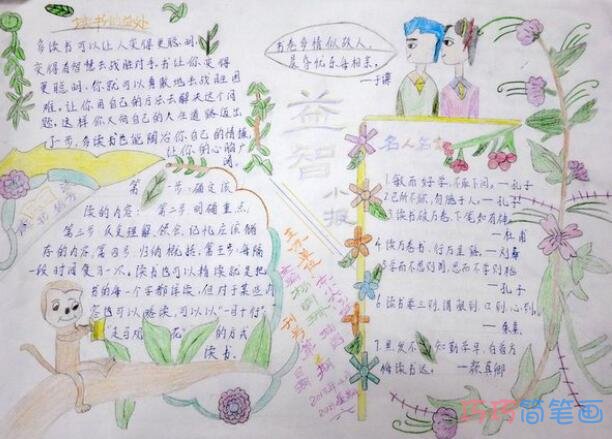 读书的益处
多读书可以让人变得更聪明,
变得有智慧去战胜对手,书让你变得
更聪明,你就可以勇敢地去战胜困
难,让你用自己的方法去解决这个问
题,这样你人向自己的人生道路迈出
了一步,多读书也能陶冶你自己的情操,
让你的心胸广
阔。
书卷多情似故人,
晨昏忧乐每相亲。
——于谦
益智
小报
第一步:确定阅
读的内容;第二步:明确重点,
第三步
存的内容,第四步:归纳概括,第五步:每隔
一段时间复习一次,读书也可以精读就是把
书的每一个字都详读,但对于某些内
容也可以略读,可以以“一目十行”
“走马观花”的方式
读书。
名人名言
1.敏而好学,不耻下问。——孔子
2.己所不欲,勿施于人。——孔子
3.读书破万卷,下笔如有神。
——杜甫
4.读万卷书,行万里路。——刘彝
5.学而不思则罔,思而不学则殆
——孔子
6.读书要三到,谓眼到,口到,心到。
——朱熹
7.黑发不知勤学早,白首方
悔读书迟。——颜真卿
巧巧简笔画